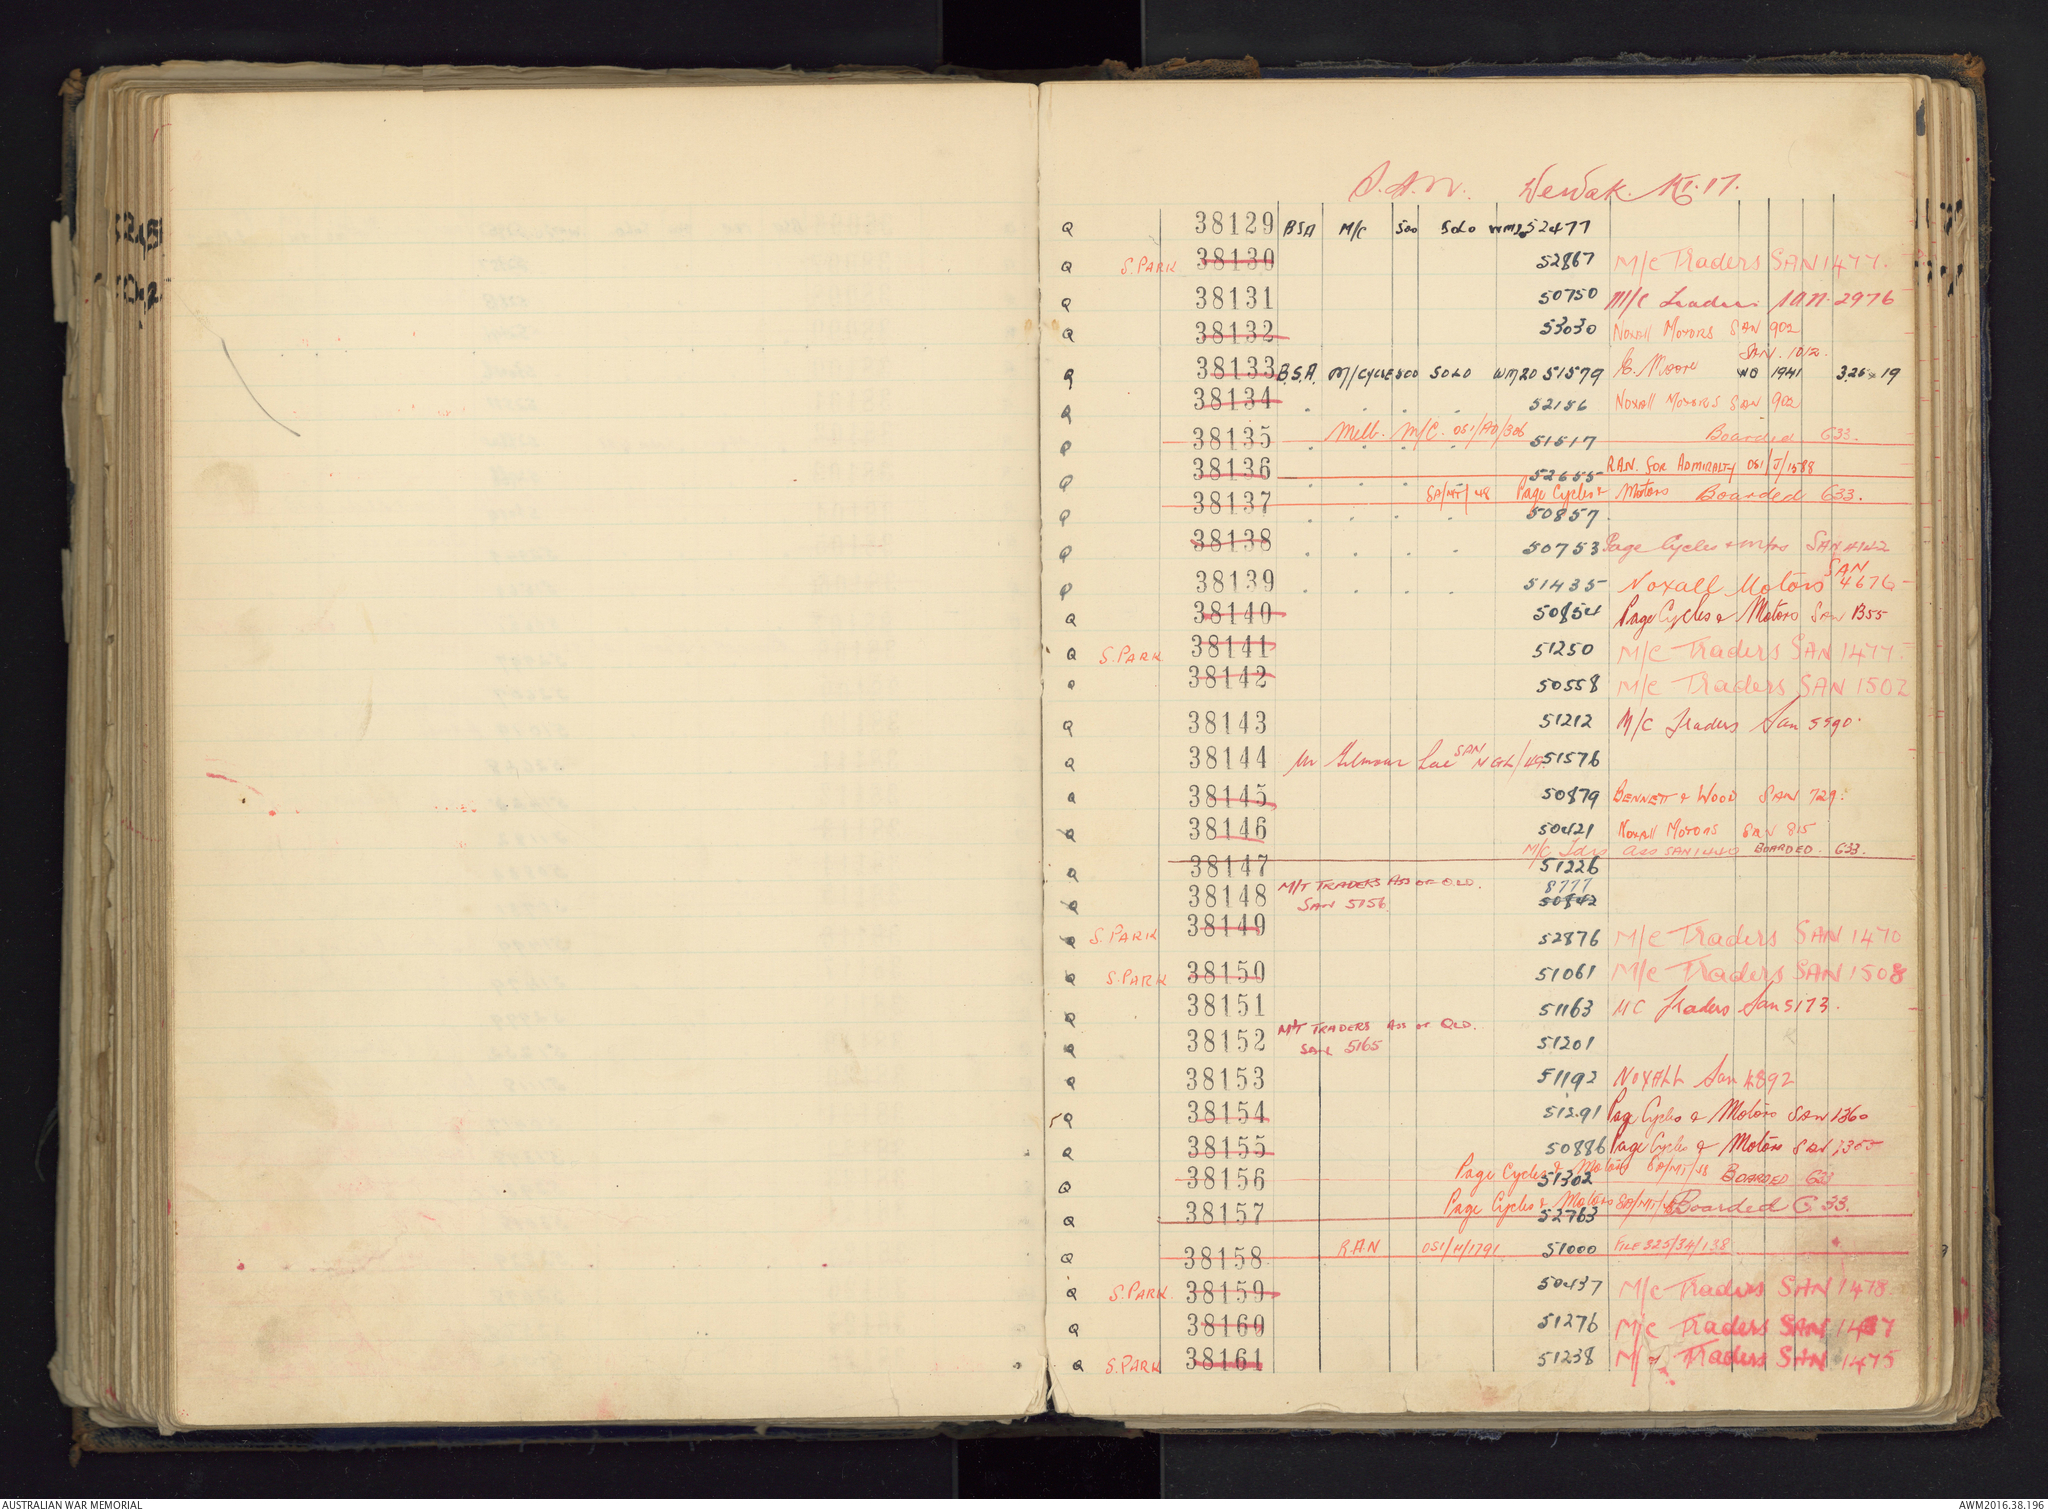 Wewak
Q 38129 BSA M/C 500 SOLO WM20 52477
Q S.PARK 38130 52867 M/C Traders SAN 1477.
Q 38131 50750 M/C Traders SAN 2976
Q 38132 53030 Noxall Motors SAN 902
SAN. 1012.
Q 38133 B.S.A. M/CYCLE 500 SOLO WM20 51579 E. Moore WO 1941 3.26 x 19
Q 38134 . . . . 52156 Noxall Motors SAN 902
Q 38135 Melb. M/C. OSI/AD/306 51517 Boarded G33.
Q 38136 . . . 52655 RAN. FOR ADMIRALTY OSI/J/1588
SA/MT/48 Page Cycles & Motors Boarded G33.
Q 38137 . . . . 50857
Q 38138 . . . . 50753 Page Cycles & Mtrs SAN 4142
Q 38139 . . . . 51435 Noxall Motors SAN 4676
Q 38140 50854 Page Cycles & Motors SAN 1355
Q S.PARK 38141 51250 M/C Traders SAN 1477.
Q 38142 50558 M/C Traders SAN 1502
Q 38143 51212 M/C Traders San 5590.
Q 38144 SAN 51576
Q 38145 50879 BENNETT & WOOD SAN 729.
Q 38146 50421 Noxall Motors SAN 815
M/C Tdrs ASS SAN 1440 BOARDED. G33.
Q 38147 51226
M/T TRADERS ASS OF QLD. 8777
Q 38148 SAN 5156 50842
Q S.PARK 38149 52876 M/C Traders SAN 1470
Q S.PARK 38150 51061 M/C Traders SAN 1508
Q 38151 51163 MC Traders San 5173.
M/T TRADERS ASS OF QLD.
Q 38152 SAN 5165 51201
Q 38153 51192 NOXALL San 4892
Q 38154 51291 Page Cycles & Motors SAN 1360
Q 38155 50886 Page Cycles & Motors SAN 1355
Q 38156 Page Cycles & Motors SA/MT/ 51302 BOARDED G33
Q 38157 Page Cycles & Motors SA/MT/ 52763 Boarded G.33.
Q 38158 R.A.N OSI/H/1791 51000 FILE 325/34/138
Q S.PARK. 38159 50437 M/C Traders SAN 1478.
Q 38160 51276 M/C Traders SAN
Q S.PARK 38161 51238 M/C Traders SAN 1475
AUSTRALIAN WAR MEMORIAL
AWM2016.38.196